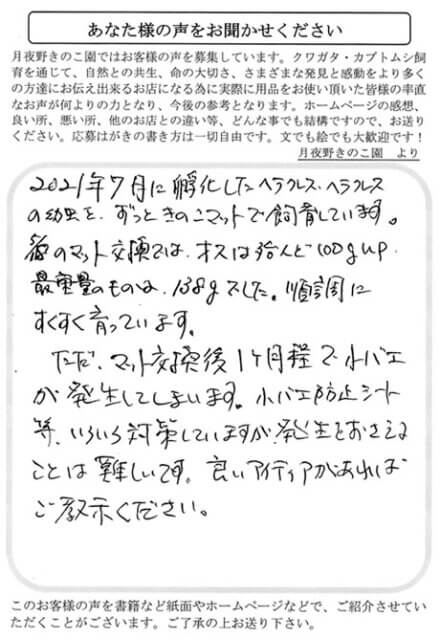 あなた様の声をお聞かせください
月夜野きのこ園ではお客様の声を募集しています。クワガタ・カブトムシ飼
育を通じて、自然との共生、命の大切さ、さまざまな発見と感動をより多く
の方達にお伝え出来るお店になる為に実際に用品をお使い頂いた皆様の率直
なお声が何よりの力となり、今後の参考となります。ホームページの感想、
良い所、悪い所、他のお店との違い等、どんな事でも結構ですので、お送り
ください。応募はがきの書き方は一切自由です。文でも絵でも大歓迎です！
月夜野きのこ園　より
2021年7月に孵化したヘラクレス・ヘラクレス
の幼虫を、ずっときのこマットで飼育しています。
のマット交換では、オスは殆んど100gup.
最重量のものは、138gでした。順調に
すくすく育っています。
ただ、マット交換後1ヶ月程で小バエ
が発生してしまいます。小バエ防止シート
等、いろいろ対策していますが、発生をおさえる
ことは難しいです。良いアイディアがあれば
ご教示ください。
このお客様の声を書籍など紙面やホームページなどで、ご紹介させてい
ただくことがございます。ご了承の上お送り下さい。